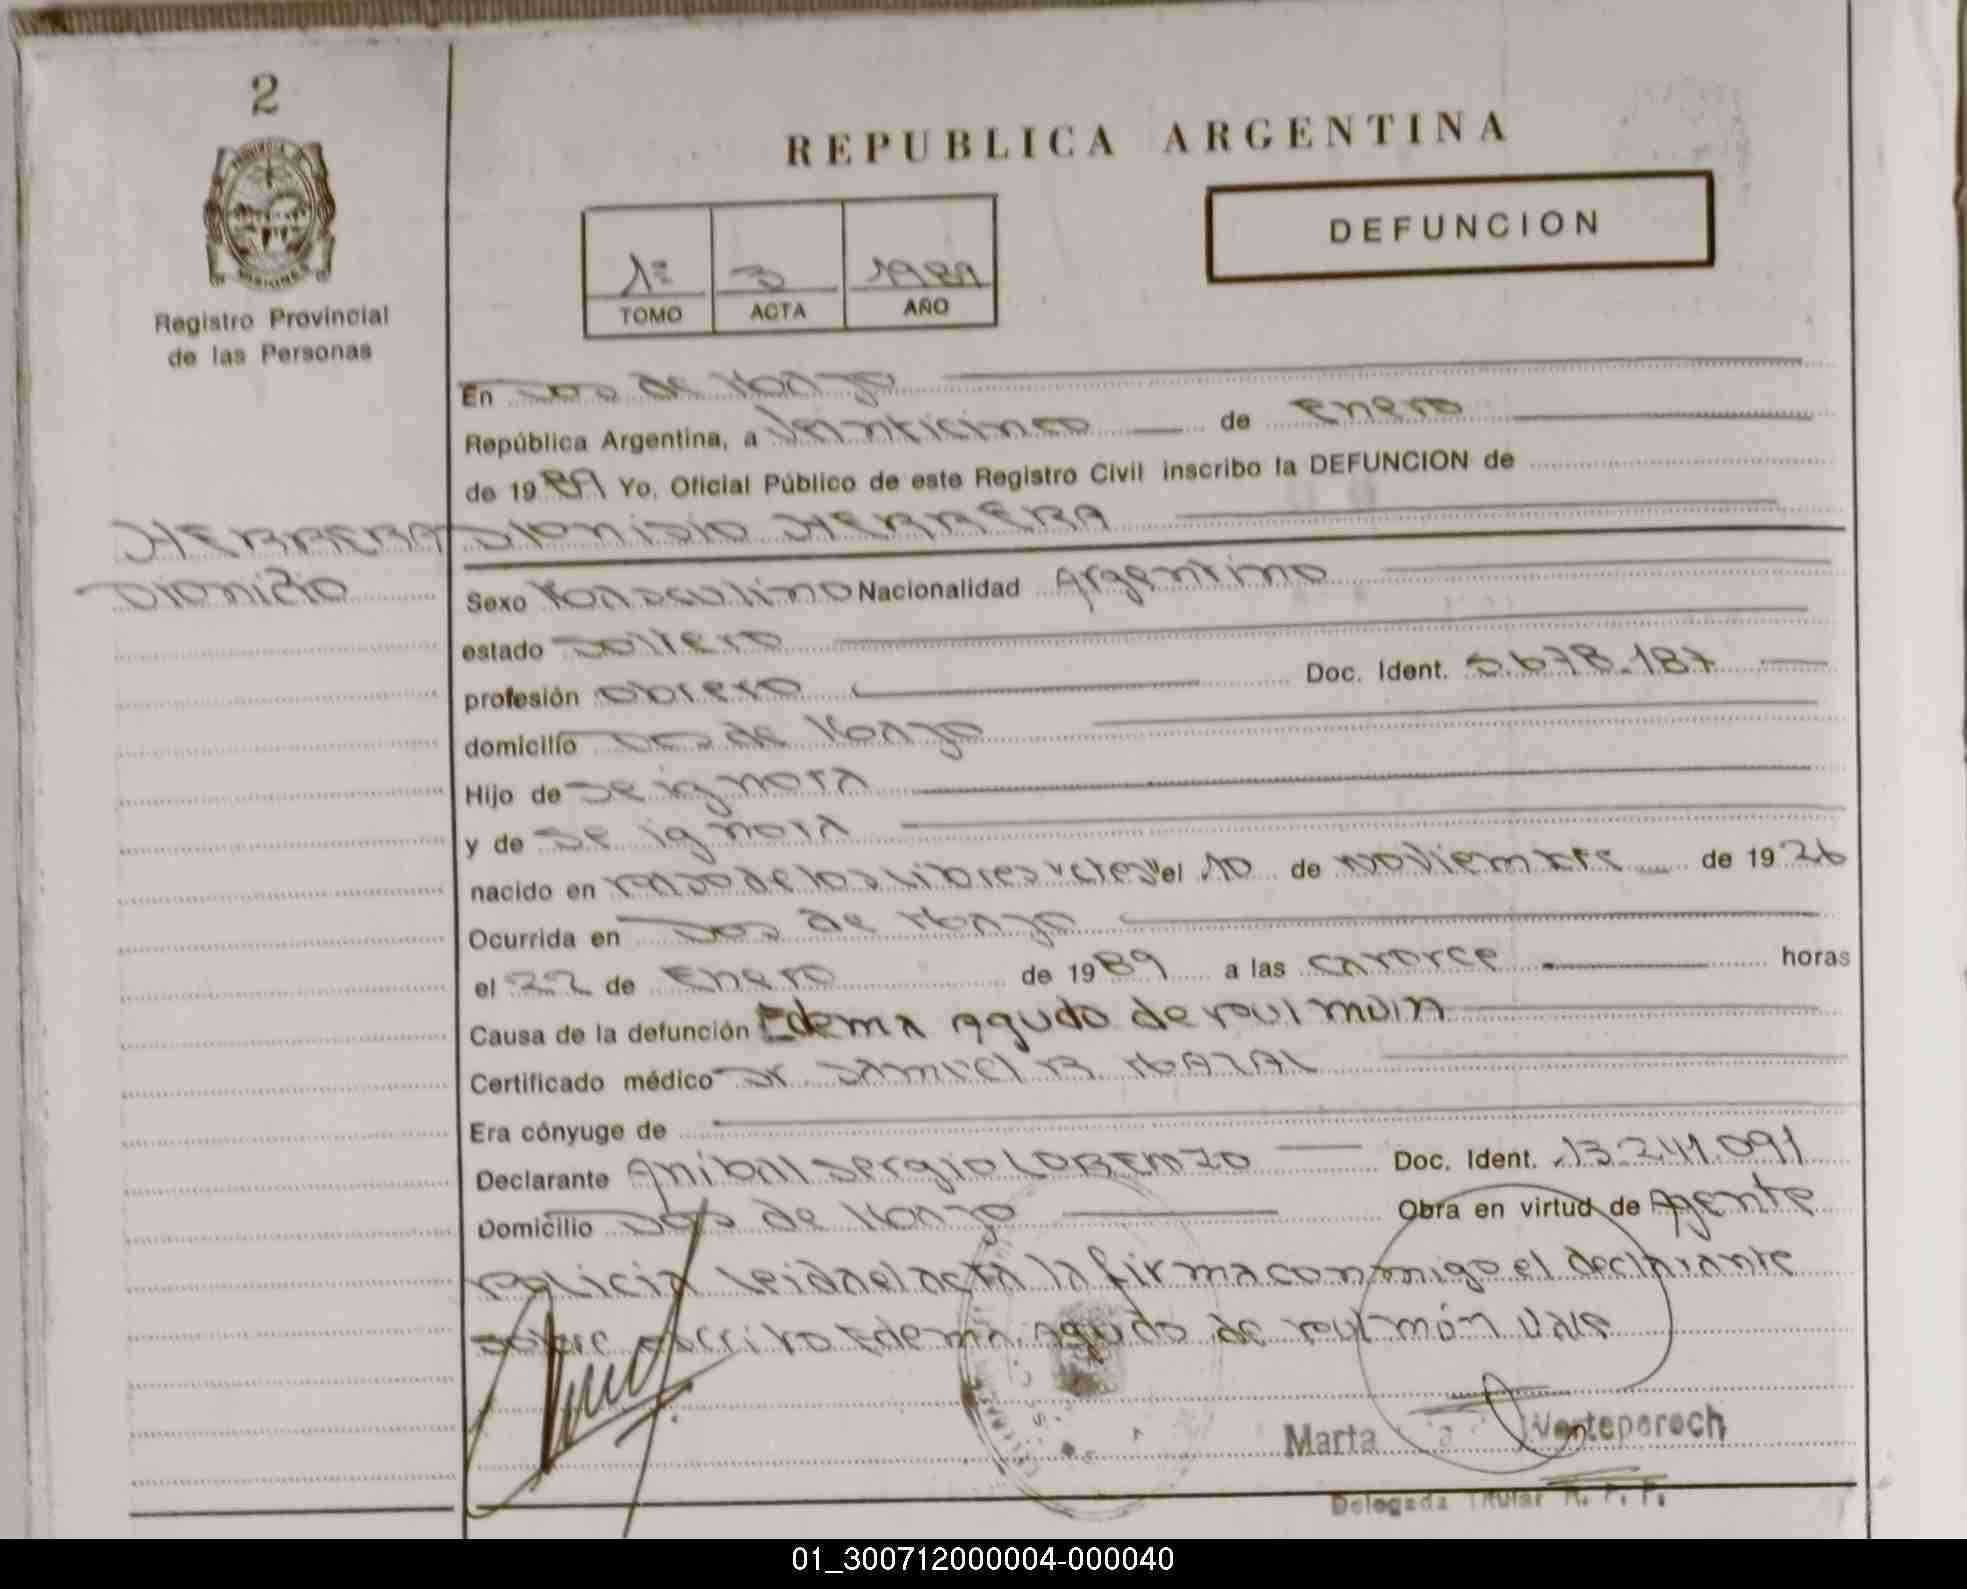 2
REPUBLICA ARGENTINA
DEFUNCION
1º 3 1989
TOMO ACTA AÑO
Registro Provincial
de las Personas
En Dos de Mayo
República Argentina, a Veinticinco de Enero
de 1989 Yo, Oficial Público de este Registro Civil inscribo la DEFUNCION de
HERRERA Dionisio HERRERA
Dionicio
Sexo Masculino Nacionalidad Argentino
estado Soltero
profesión Obrero Doc. Ident. 5.678.187
domicilio Dos de Mayo
Hijo de Se ignora
y de Se ignora
nacido en Paso de los Libres "Ctes" el 10 de Noviembre de 1926
Ocurrida en Dos de Mayo
el 22 de Enero de 1989 a las catorce horas
Causa de la defunción Edema Agudo de Pulmoin
Certificado médico Dr Samuel B.
Era cónyuge de
Declarante Anibal Sergio LORENZO Doc. Ident. 13.241.091
Domicilio Dos de Mayo Obra en virtud de Agente
Policia leida el acta la firma conmigo el declarante
Sobre escrito Edema Agudo de Pulmón Vale
Marta
Delegada Titular R. P. P.
01_300712000004-000040